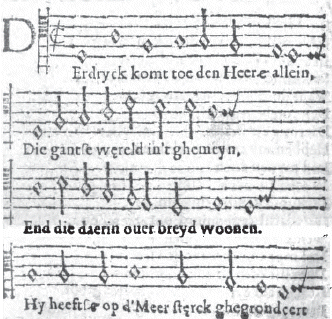 D Erdryck komt toe den Heere allein,
Die gantse wereld in't ghemeyn,
End die daerin ouer breyd woonen.
Hy heeftse op d'Meer sterck ghegrondeert